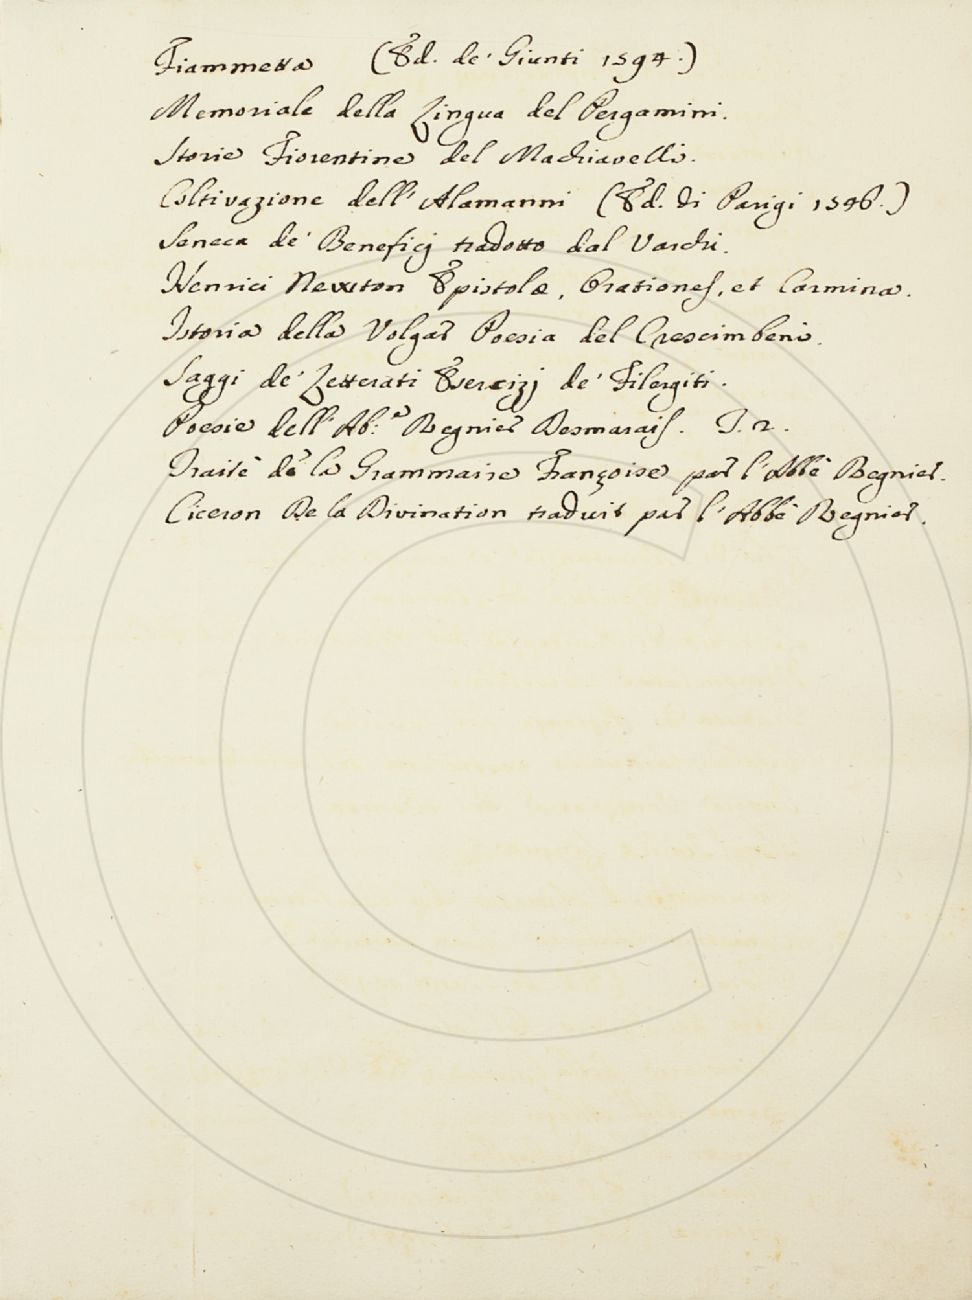 Fiammetta (Ed. de' Giunti 1594.)
Memoriale della Lingua del Pergamini.
Storie Fiorentine del Machiavelli.
Coltivazione dell' Alamanni (Ed. di Parigi 1546.)
Seneca de' Beneficj tradotto dal Varchi.
Henrici Newton Epistolæ, Orationes, et Carmina.
Istoria della Volgar Poesia del Crescimbeni.
Saggi de' Letterati Esercizj de' Filergiti.
Poesie dell' Ab:e Regnier Desmarais. T. 2.
Traitè de la Grammaire Françoise par l'Abbè Regnier.
Ciceron De la Divination traduit par l'Abbè Regnier.